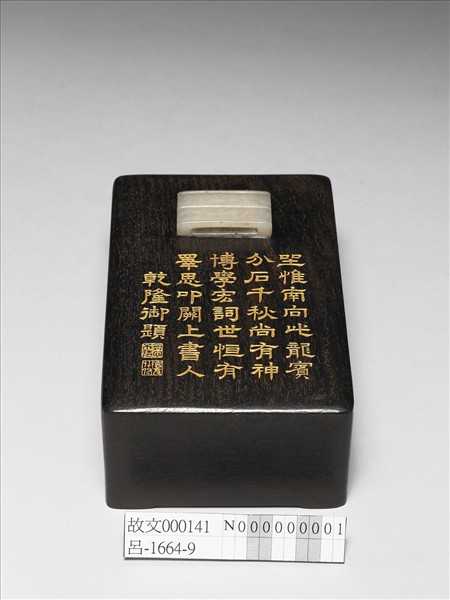 坐惟南向比龍賓
介石千秋尚有神
博學宏詞世恒有
覃思叩闕上書人
乾隆御題
故文000141 N000000001
呂-1664-9